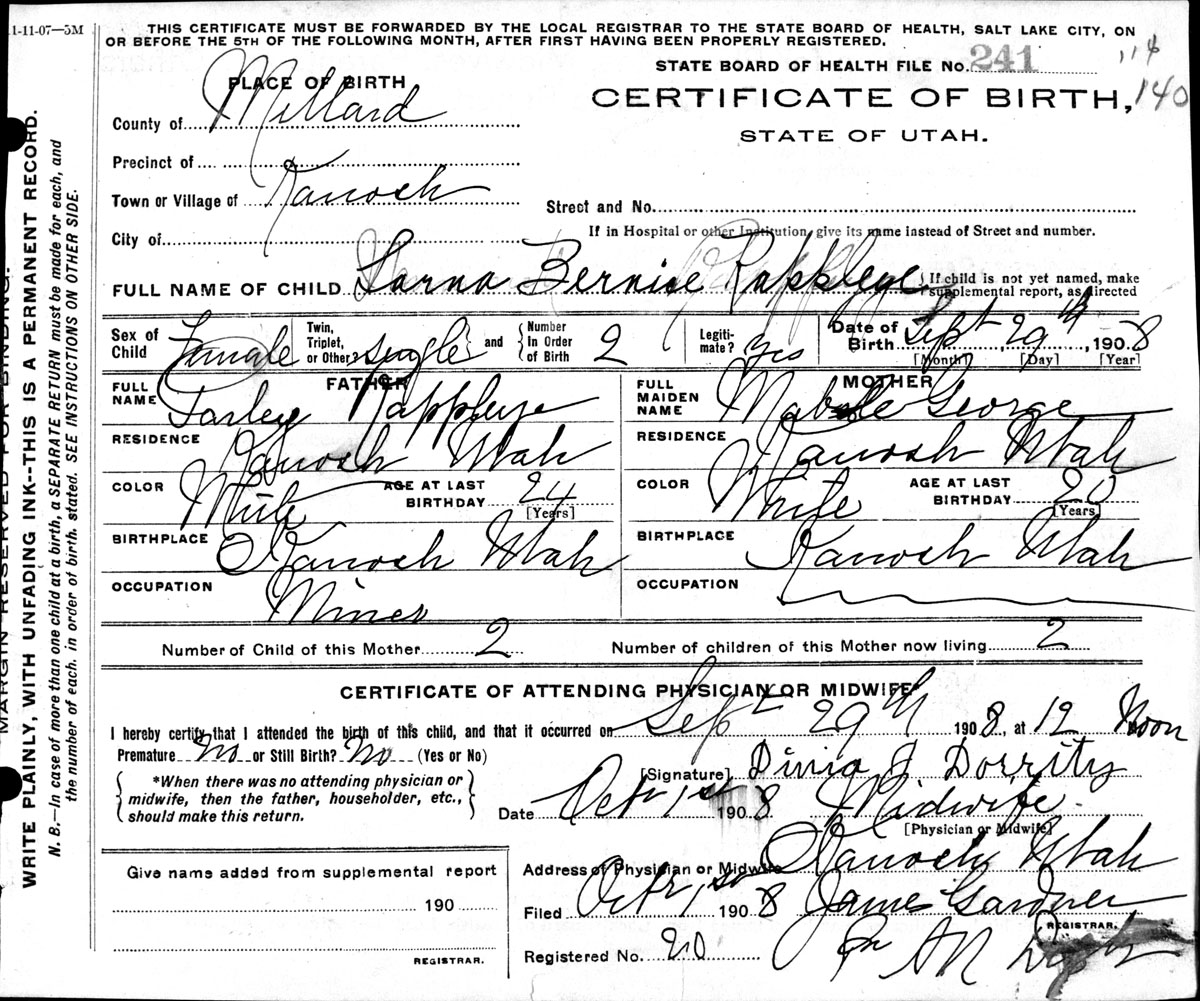 1-11-07—5M
THIS CERTIFICATE MUST BE FORWARDED BY THE LOCAL REGISTRAR TO THE STATE BOARD OF HEALTH, SALT LAKE CITY, ON
OR BEFORE THE 5TH OF THE FOLLOWING MONTH, AFTER FIRST HAVING BEEN PROPERLY REGISTERED.
STATE BOARD OF HEALTH FILE No. 241
114
140
PLACE OF BIRTH
CERTIFICATE OF BIRTH,
STATE OF UTAH.
County of Millard
Precinct of
Town or Village of Kanosh
Street and No.
City of
If in Hospital or other Institution, give its name instead of Street and number.
FULL NAME OF CHILD Larna Bernise Rappleye
If child is not yet named, make
supplemental report, as directed
Sex of Child Female
Twin, Triplet, or Other? single and Number In Order of Birth 2
Legiti-mate? Yes
Date of Birth Sept 29th, 1908
[Month] [Day] [Year]
FATHER
FULL NAME Farley Rappleye
RESIDENCE Kanosh Utah
COLOR White AGE AT LAST BIRTHDAY 24
[Years]
BIRTHPLACE Kanosh Utah
OCCUPATION Miner
MOTHER
FULL MAIDEN NAME Mabele George
RESIDENCE Kanosh Utah
COLOR White AGE AT LAST BIRTHDAY 20
[Years]
BIRTHPLACE Kanosh Utah
OCCUPATION
Number of Child of this Mother 2 Number of children of this Mother now living 2
CERTIFICATE OF ATTENDING PHYSICIAN OR MIDWIFE*
I hereby certify that I attended the birth of this child, and that it occurred on Sept 29th 1908, at 12 Noon
Premature No or Still Birth? No (Yes or No)
*When there was no attending physician or
midwife, then the father, householder, etc.,
should make this return.
[Signature] Divia J Dorrity
Date Oct 1st 1908 Midwife
[Physician or Midwife]
Address of Physician or Midwife Kanosh Utah
Filed Oct 1st 1908 James Gardner
REGISTRAR.
Registered No. 20
Give name added from supplemental report
190
REGISTRAR.
MARGIN RESERVED FOR BINDING.
WRITE PLAINLY, WITH UNFADING INK--THIS IS A PERMANENT RECORD.
N. B.—In case of more than one child at a birth, a SEPARATE RETURN must be made for each, and
the number of each, in order of birth, stated. SEE INSTRUCTIONS ON OTHER SIDE.